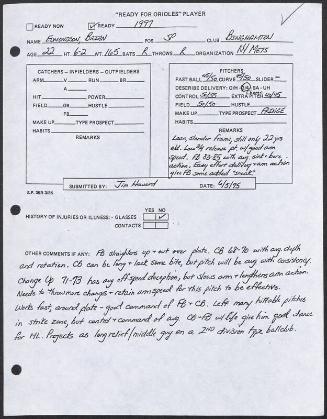 "READY FOR ORIOLES" PLAYER
READY NOW READY 1997
NAME Edmondson, Brian POS SP CLUB Binghamton
AGE 22 HT 6-2 WT 165 BATS R THROWS R ORGANIZATION NY Mets
CATCHERS - INFIELDERS - OUTFIELDERS
ARM V RUN BR
HIT V
POWER
FIELD OR HUSTLE
MAKE-UP TYPE PROSPECT
HABITS
REMARKS
PITCHERS
FAST BALL CURVE SLIDER
DESCRIBE DELIVERY: OH SA - UH
CONTROL 50/55 EXTRA PITCH
FIELD 50/50 HUSTLE
MAKE-UP TYPE PROSPECT FRINGE
HABITS
REMARKS
Lean, slender frame, still only 22 yrs
old. Low 3/4 release pt. w/good arm
speed. FB 83-85 with avg sink + bore
action. Easy effort delivery + arm action
give FB some added "sneak".
SUBMITTED BY: Jim Howard DATE 6/5/95
YES NO
HISTORY OF INJURIES OR ILLNESS: - GLASSES
CONTACTS
OTHER COMMENTS IF ANY: FB straightens up + out over plate. CB 68-70 with avg depth
and rotation. CB can be long + lack some bite, but pitch will be avg with consistency.
Change Up 71-73 has avg off-speed deception, but slows arm + lengthens arm action.
Needs to throw more changes + retain arm speed for this pitch to be effective.
Works fast, around plate - good command of FB + CB. Left many hittable pitches
in strike zone, but control + command of avg CB-FB will give him good chance
for ML. Projects as long relief/middle guy on a 2nd division type ballclub.